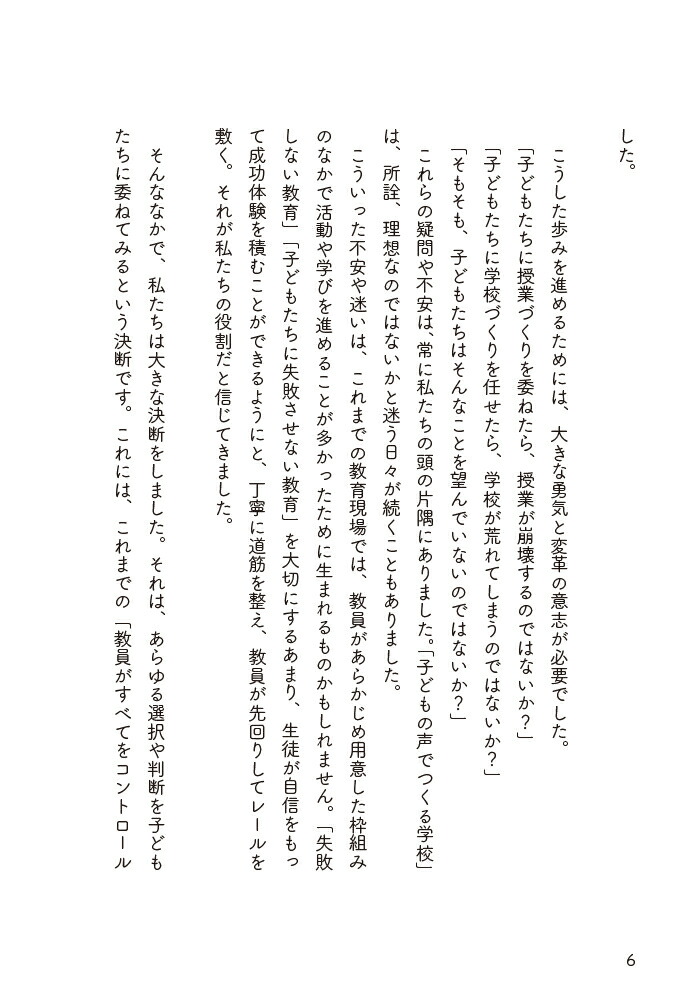 した。
こうした歩みを進めるためには、大きな勇気と変革の意志が必要でした。
「子どもたちに授業づくりを委ねたら、授業が崩壊するのではないか？」
「子どもたちに学校づくりを任せたら、学校が荒れてしまうのではないか？」
「そもそも、子どもたちはそんなことを望んでいないのではないか？」
これらの疑問や不安は、常に私たちの頭の片隅にありました。「子どもの声でつくる学校」
は、所詮、理想なのではないかと迷う日々が続くこともありました。
こういった不安や迷いは、これまでの教育現場では、教員があらかじめ用意した枠組み
のなかで活動や学びを進めることが多かったために生まれるものかもしれません。「失敗
しない教育」「子どもたちに失敗させない教育」を大切にするあまり、生徒が自信をもっ
て成功体験を積むことができるようにと、丁寧に道筋を整え、教員が先回りしてレールを
敷く。それが私たちの役割だと信じてきました。
そんななかで、私たちは大きな決断をしました。それは、あらゆる選択や判断を子ども
たちに委ねてみるという決断です。これには、これまでの「教員がすべてをコントロール
6